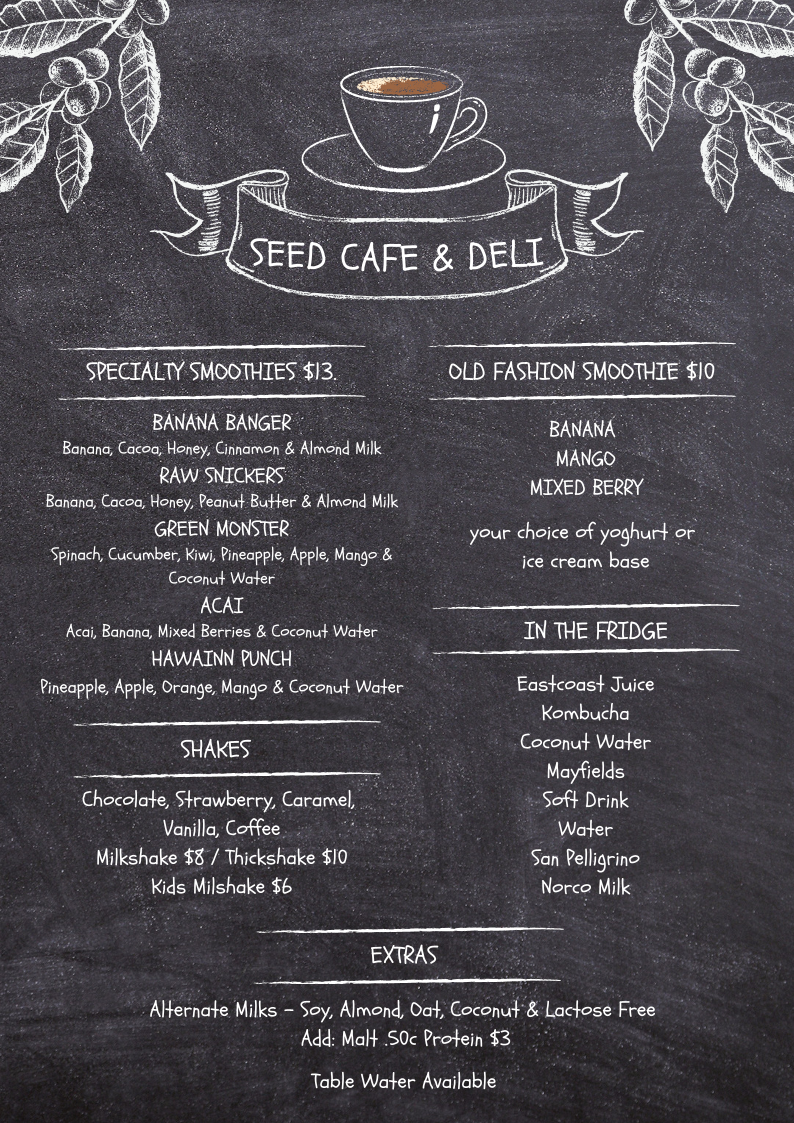 SEED CAFE & DELI
SPECIALTY SMOOTHIES $13.
BANANA BANGER
Banana, Cacoa, Honey, Cinnamon & Almond Milk
RAW SNICKERS
Banana, Cacoa, Honey, Peanut Butter & Almond Milk
GREEN MONSTER
Spinach, Cucumber, Kiwi, Pineapple, Apple, Mango &
Coconut Water
ACAI
Acai, Banana, Mixed Berries & Coconut Water
HAWAINN PUNCH
Pineapple, Apple, Orange, Mango & Coconut Water
SHAKES
Chocolate, Strawberry, Caramel,
Vanilla, Coffee
Milkshake $8 / Thickshake $10
Kids Milshake $6
OLD FASHION SMOOTHIE $10
BANANA
MANGO
MIXED BERRY
your choice of yoghurt or
ice cream base
IN THE FRIDGE
Eastcoast Juice
Kombucha
Coconut Water
Mayfields
Soft Drink
Water
San Pelligrino
Norco Milk
EXTRAS
Alternate Milks - Soy, Almond, Oat, Coconut & Lactose Free
Add: Malt .50c Protein $3
Table Water Available